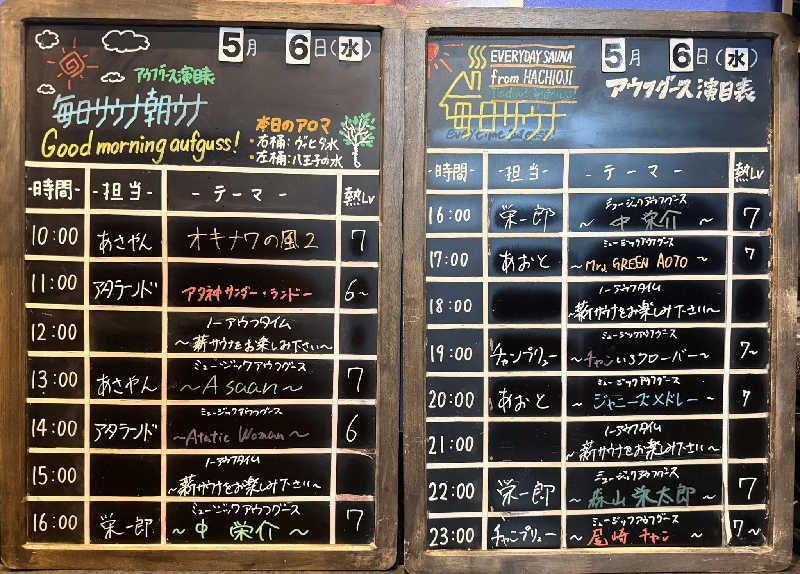 5月 6日(水)
アウフグース演目表
毎日サウナ朝ウナ
Good morning aufguss!
本日のアロマ
・右桶:ヴィヒタ水
・左桶:八王子の水
-時間- -担当- -テーマ- 熱Lv
10:00 あさやん オキナワの風2 7
11:00 アタランド アタ神サンダー・ランドー 6~
12:00 ノーアウフタイム
~薪サウナをお楽しみ下さい~
13:00 あさやん ミュージックアウフグース 7
~Asaan~
14:00 アタランド ミュージックアウフグース 6
~Atatic Woman~
15:00 ノーアウフタイム
~薪サウナをお楽しみ下さい~
16:00 栄一郎 ミュージックアウフグース 7
~中 栄介~
5月 6日(水)
EVERYDAY SAUNA
from HACHIOJI
毎日サウナ
アウフグース演目表
-時間- -担当- -テーマ- 熱Lv
16:00 栄一郎 ミュージックアウフグース 7
~中 栄介~
17:00 あおと ミュージックアウフグース 7
~Mrs. GREEN AOTO~
18:00 ノーアウフタイム
~薪サウナをお楽しみ下さい~
19:00 チャンプリュー ミュージックアウフグース 7~
~チャンいろクローバー~
20:00 あおと ミュージックアウフグース 7
~ジャニーズメドレー~
21:00 ノーアウフタイム
~薪サウナをお楽しみ下さい~
22:00 栄一郎 ミュージックアウフグース 7
~森山栄太郎~
23:00 チャンプリュー ミュージックアウフグース 7~
~尾崎チャン~